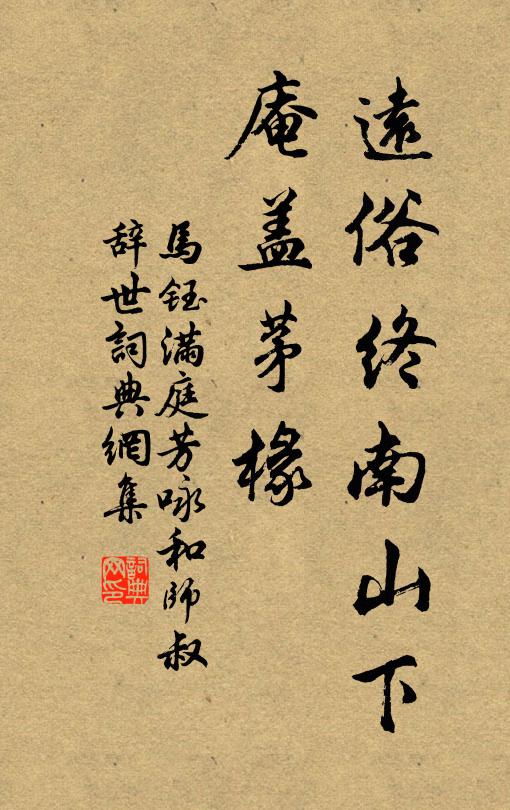 遠俗終南山下
庵盖茅椽
馬鈺满庭芳咏和師叔
辞世詞典網集
詞典
网印